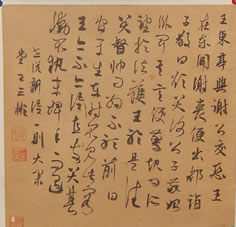 王東亭與謝公交惡王
在東聞謝喪便出都詣
子敬欲哭謝公子敬始
臥聞其言便驚起曰所
望於法護王於是往
哭督帥刁約不聽前曰
官平生在時不見此客
王亦不與語直前哭甚
慟不執末婢手而退
世說新語